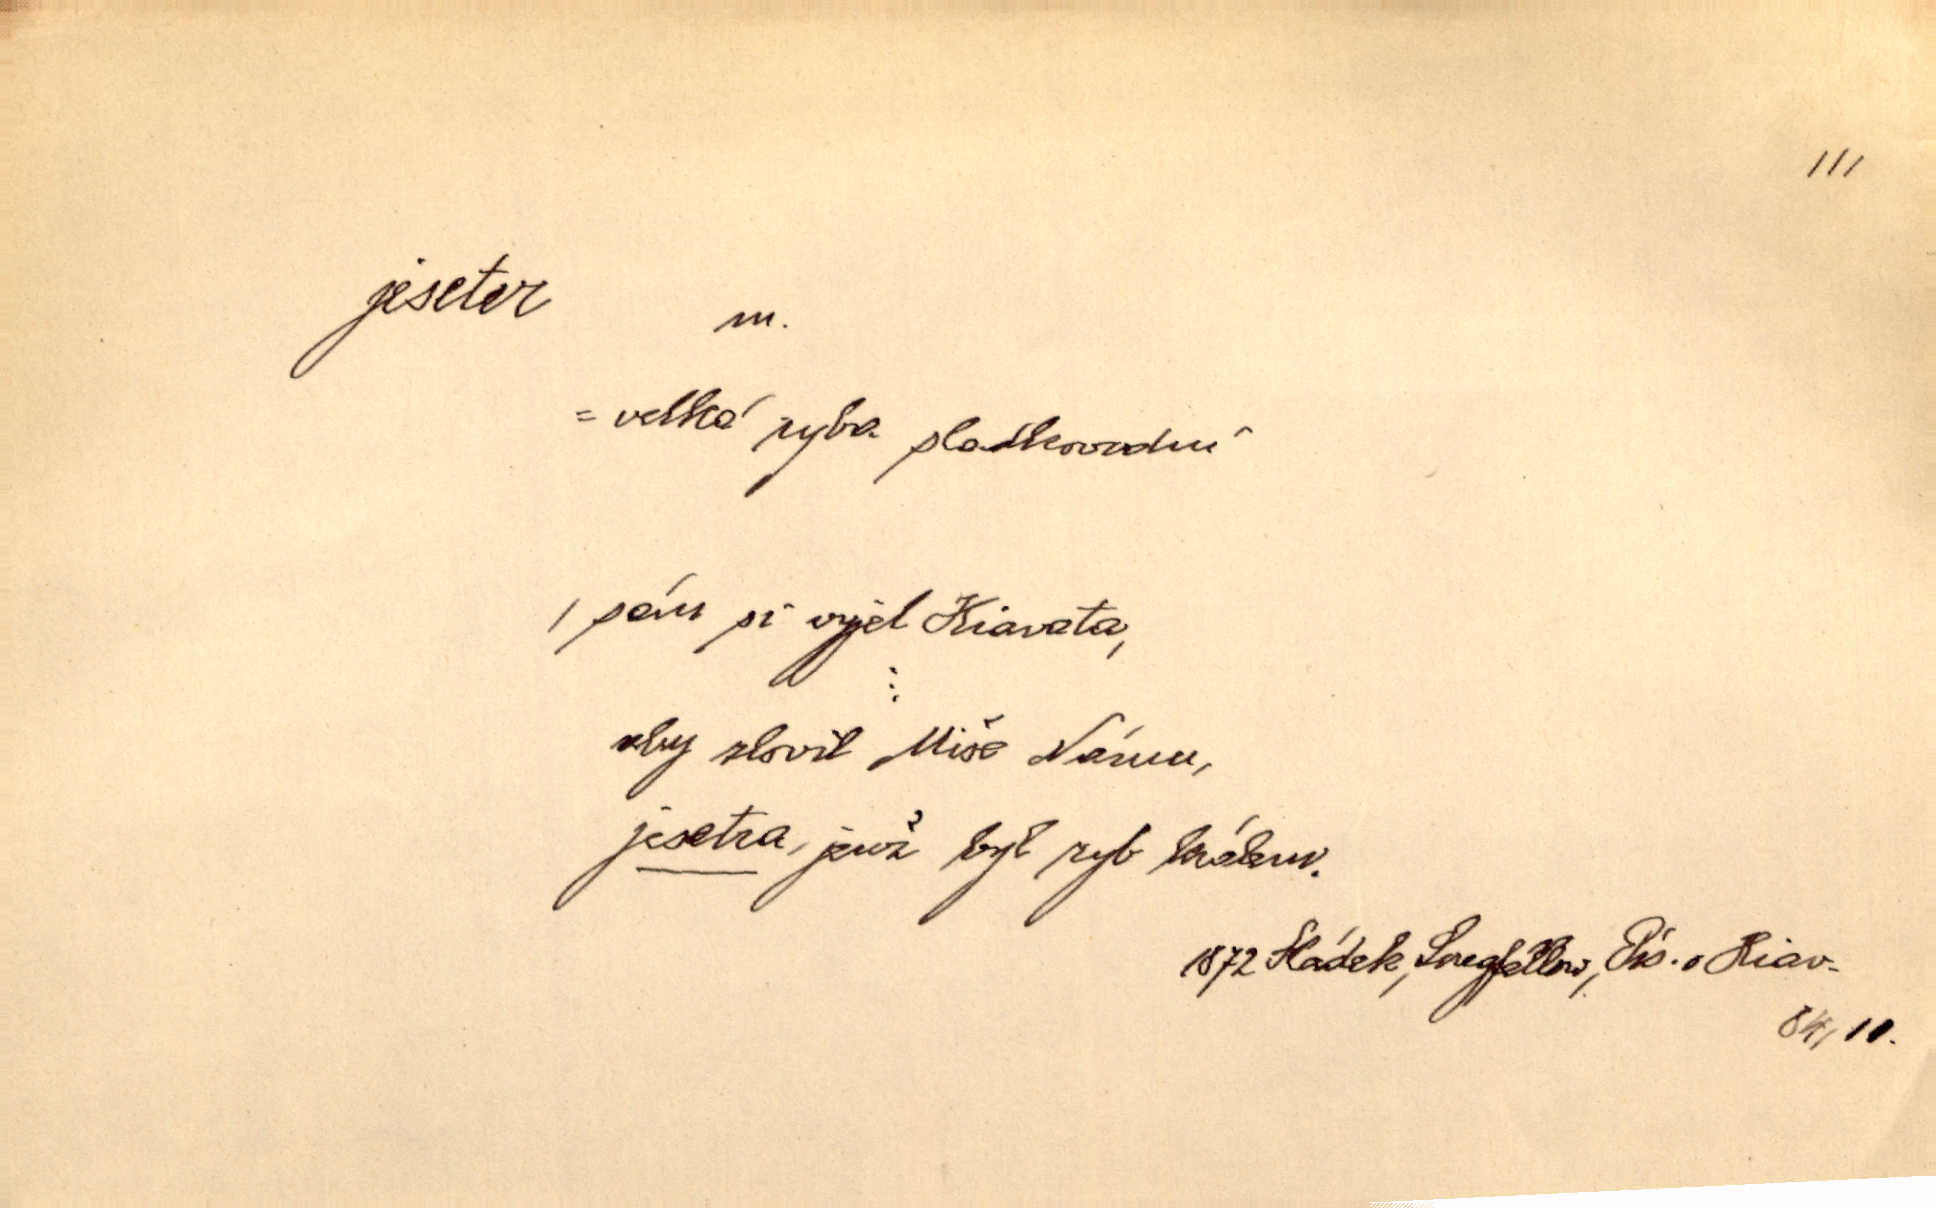 111
jeseter m.
= velká ryba sladkovodní
, sám si vyjel Hiavata,
⋮
aby slovil Miše Námu,
jesetra, jenž byl ryb králem.
1872 Sládek, Longfellow, Pís. o Hiav.
84, 10.